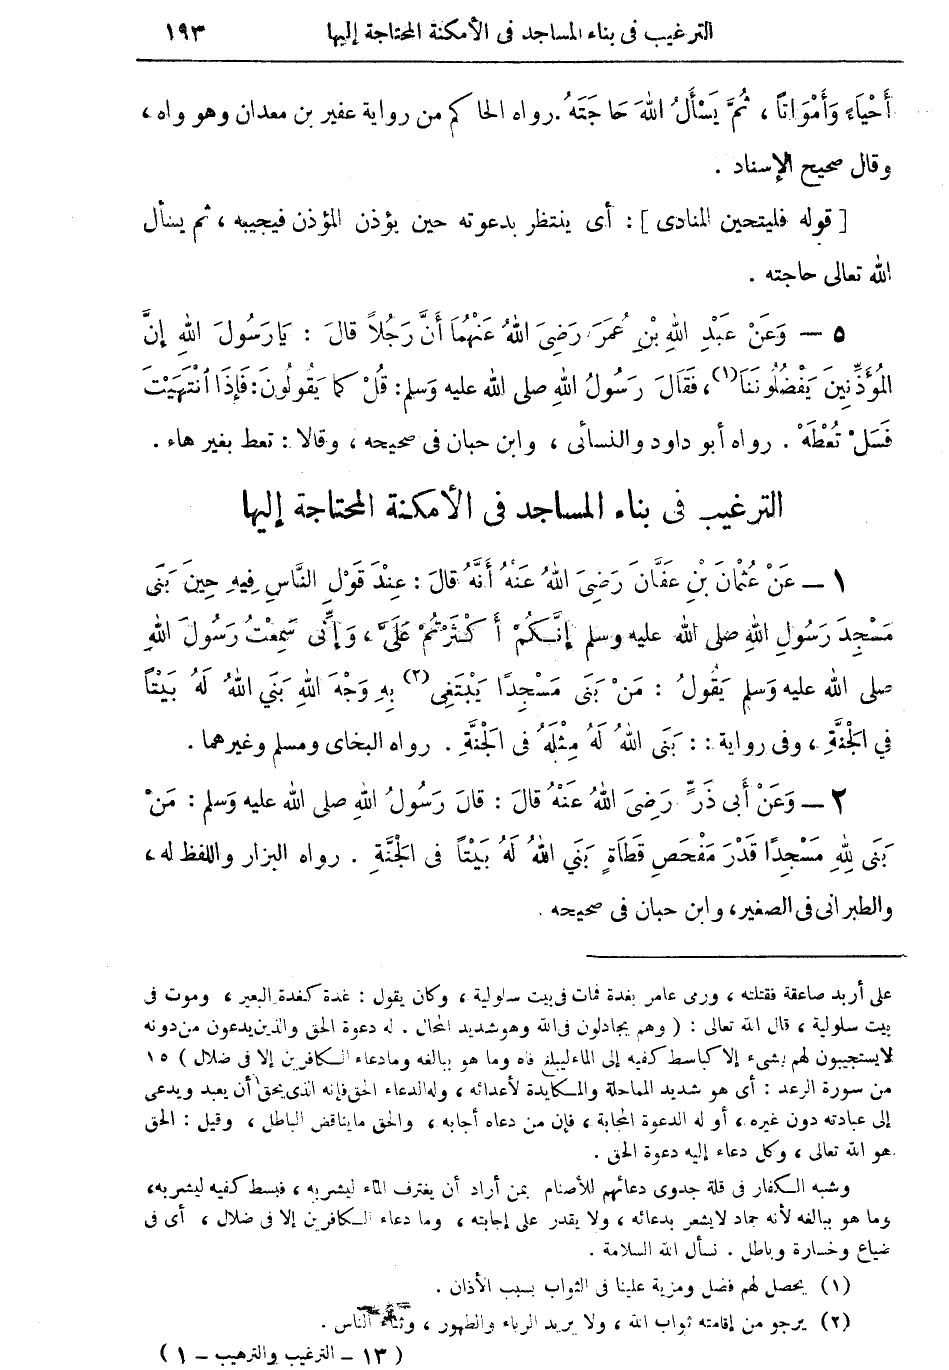 الترغيب فى بناء المساجد فى الأمكنة المحتاجة إليها ١٩٣
أَحْيَاءً وَأَمْوَاتاً ، ثُمَّ يَسْأَلُ اللهَ حَاجَتَهُ . رواه الحاكم من رواية عفير بن معدان وهو واه ،
وقال صحيح الإسناد .
[ قوله فليتحين المنادى ] : أى ينتظر بدعوته حين يؤذن المؤذن فيجيبه ، ثم يسأل
الله تعالى حاجته .
٥ — وَعَنْ عَبْدِ اللهِ بْنِ عُمَرَ رَضِىَ اللهُ عَنْهُمَا أَنَّ رَجُلاً قالَ : يَارَسُولَ اللهِ إِنَّ
المُؤَذِّنِينَ يَفْضُلُونَنَا (١) ، فَقَالَ رَسُولُ اللهِ صلى الله عليه وَسلم : قُلْ كمَا يَقُولُونَ : فَإِذَا انْتَهَيْتَ
فَسَلْ تُعْطَهْ . رواه أبو داود والنسائى ، وابن حبان فى صحيحه ، وقالا : تعط بغير هاء .
الترغيب فى بناء المساجد فى الأمكنة المحتاجة إليها
١ — عَنْ عُثْمَانَ بْنِ عَفَّانَ رَضِىَ اللهُ عَنْهُ أَنَّهُ قَالَ : عِنْدَ قَوْلِ النَّاسِ فِيهِ حِينَ بَنَى
مَسْجِدَ رَسُولِ اللهِ صلى الله عليه وسلم إِنَّكُمْ أَكْثَرْتُمْ عَلَىَّ ، وَإِنِّى سَمِعْتُ رَسُولَ اللهِ
صلى الله عليه وَسلم يَقُولُ : مَنْ بَنَى مَسْجِدًا يَبْتَغِى (٢) بِهِ وَجْهَ اللهِ بَنَي اللهُ لَهُ بَيْتًا
فِي الجَنَّةِ ، وفى رواية : : بَنَى اللهُ لَهُ مِثْلَهُ فى الجَنَّةِ . رواه البخاى ومسلم وغيرهما .
٢ — وَعَنْ أَبى ذَرٍّ رَضِىَ اللهُ عَنْهُ قالَ : قالَ رَسُولُ اللهِ صلى الله عليه وَسلم : مَنْ
بَنَى لِلهِ مَسْجِدًا قَدْرَ مَفْحَصِ قَطَاةٍ بَنَي اللهُ لَهُ بَيْتاً فى الجَنَّةِ . رواه البزار واللفظ له ،
والطبرانى فى الصغير ، وابن حبان فى صحيحه .
على أربد صاعقة فقتلته ، ورمى عامر بغدة فمات فى بيت سلولية ، وكان يقول : غدة كغدة البعير ، وموت فى
بيت سلولية ، قال الله تعالى : ( وهم يجادلون فى الله وهو شديد المحال . له دعوة الحق والذين يدعون من دونه
لا يستجيبون لهم بشىء إلا كباسط كفيه إلى الماء ليبلغ فاه وما هو ببالغه وما دعاء الكافرين إلا فى ضلال ) ١٥
من سورة الرعد : أى هو شديد الماحلة والمكايدة لأعدائه ، وله الدعاء الحق فإنه الذى يحق أن يعبد ويدعى
إلى عبادته دون غيره ، أو له الدعوة المجابة ، فإن من دعاه أجابه ، والحق ما يناقض الباطل ، وقيل : الحق
هو الله تعالى ، وكل دعاء إليه دعوة الحق .
وشبه الكفار فى قلة جدوى دعائهم للأصنام بمن أراد أن يغترف الماء ليشربه ، فبسط كفيه ليشربه ،
وما هو ببالغه لأنه جماد لا يشعر بدعائه ، ولا يقدر على إجابته ، وما دعاء الكافرين إلا فى ضلال ، أى فى
ضياع وخسارة وباطل . نسأل الله السلامة .
(١) يحصل لهم فضل ومزية علينا فى الثواب بسبب الأذان .
(٢) يرجو من إقامته ثواب الله ، ولا يريد الرياء والظهور ، وثناء الناس .
( ١٣ – الترغيب والترهيب – ١ )